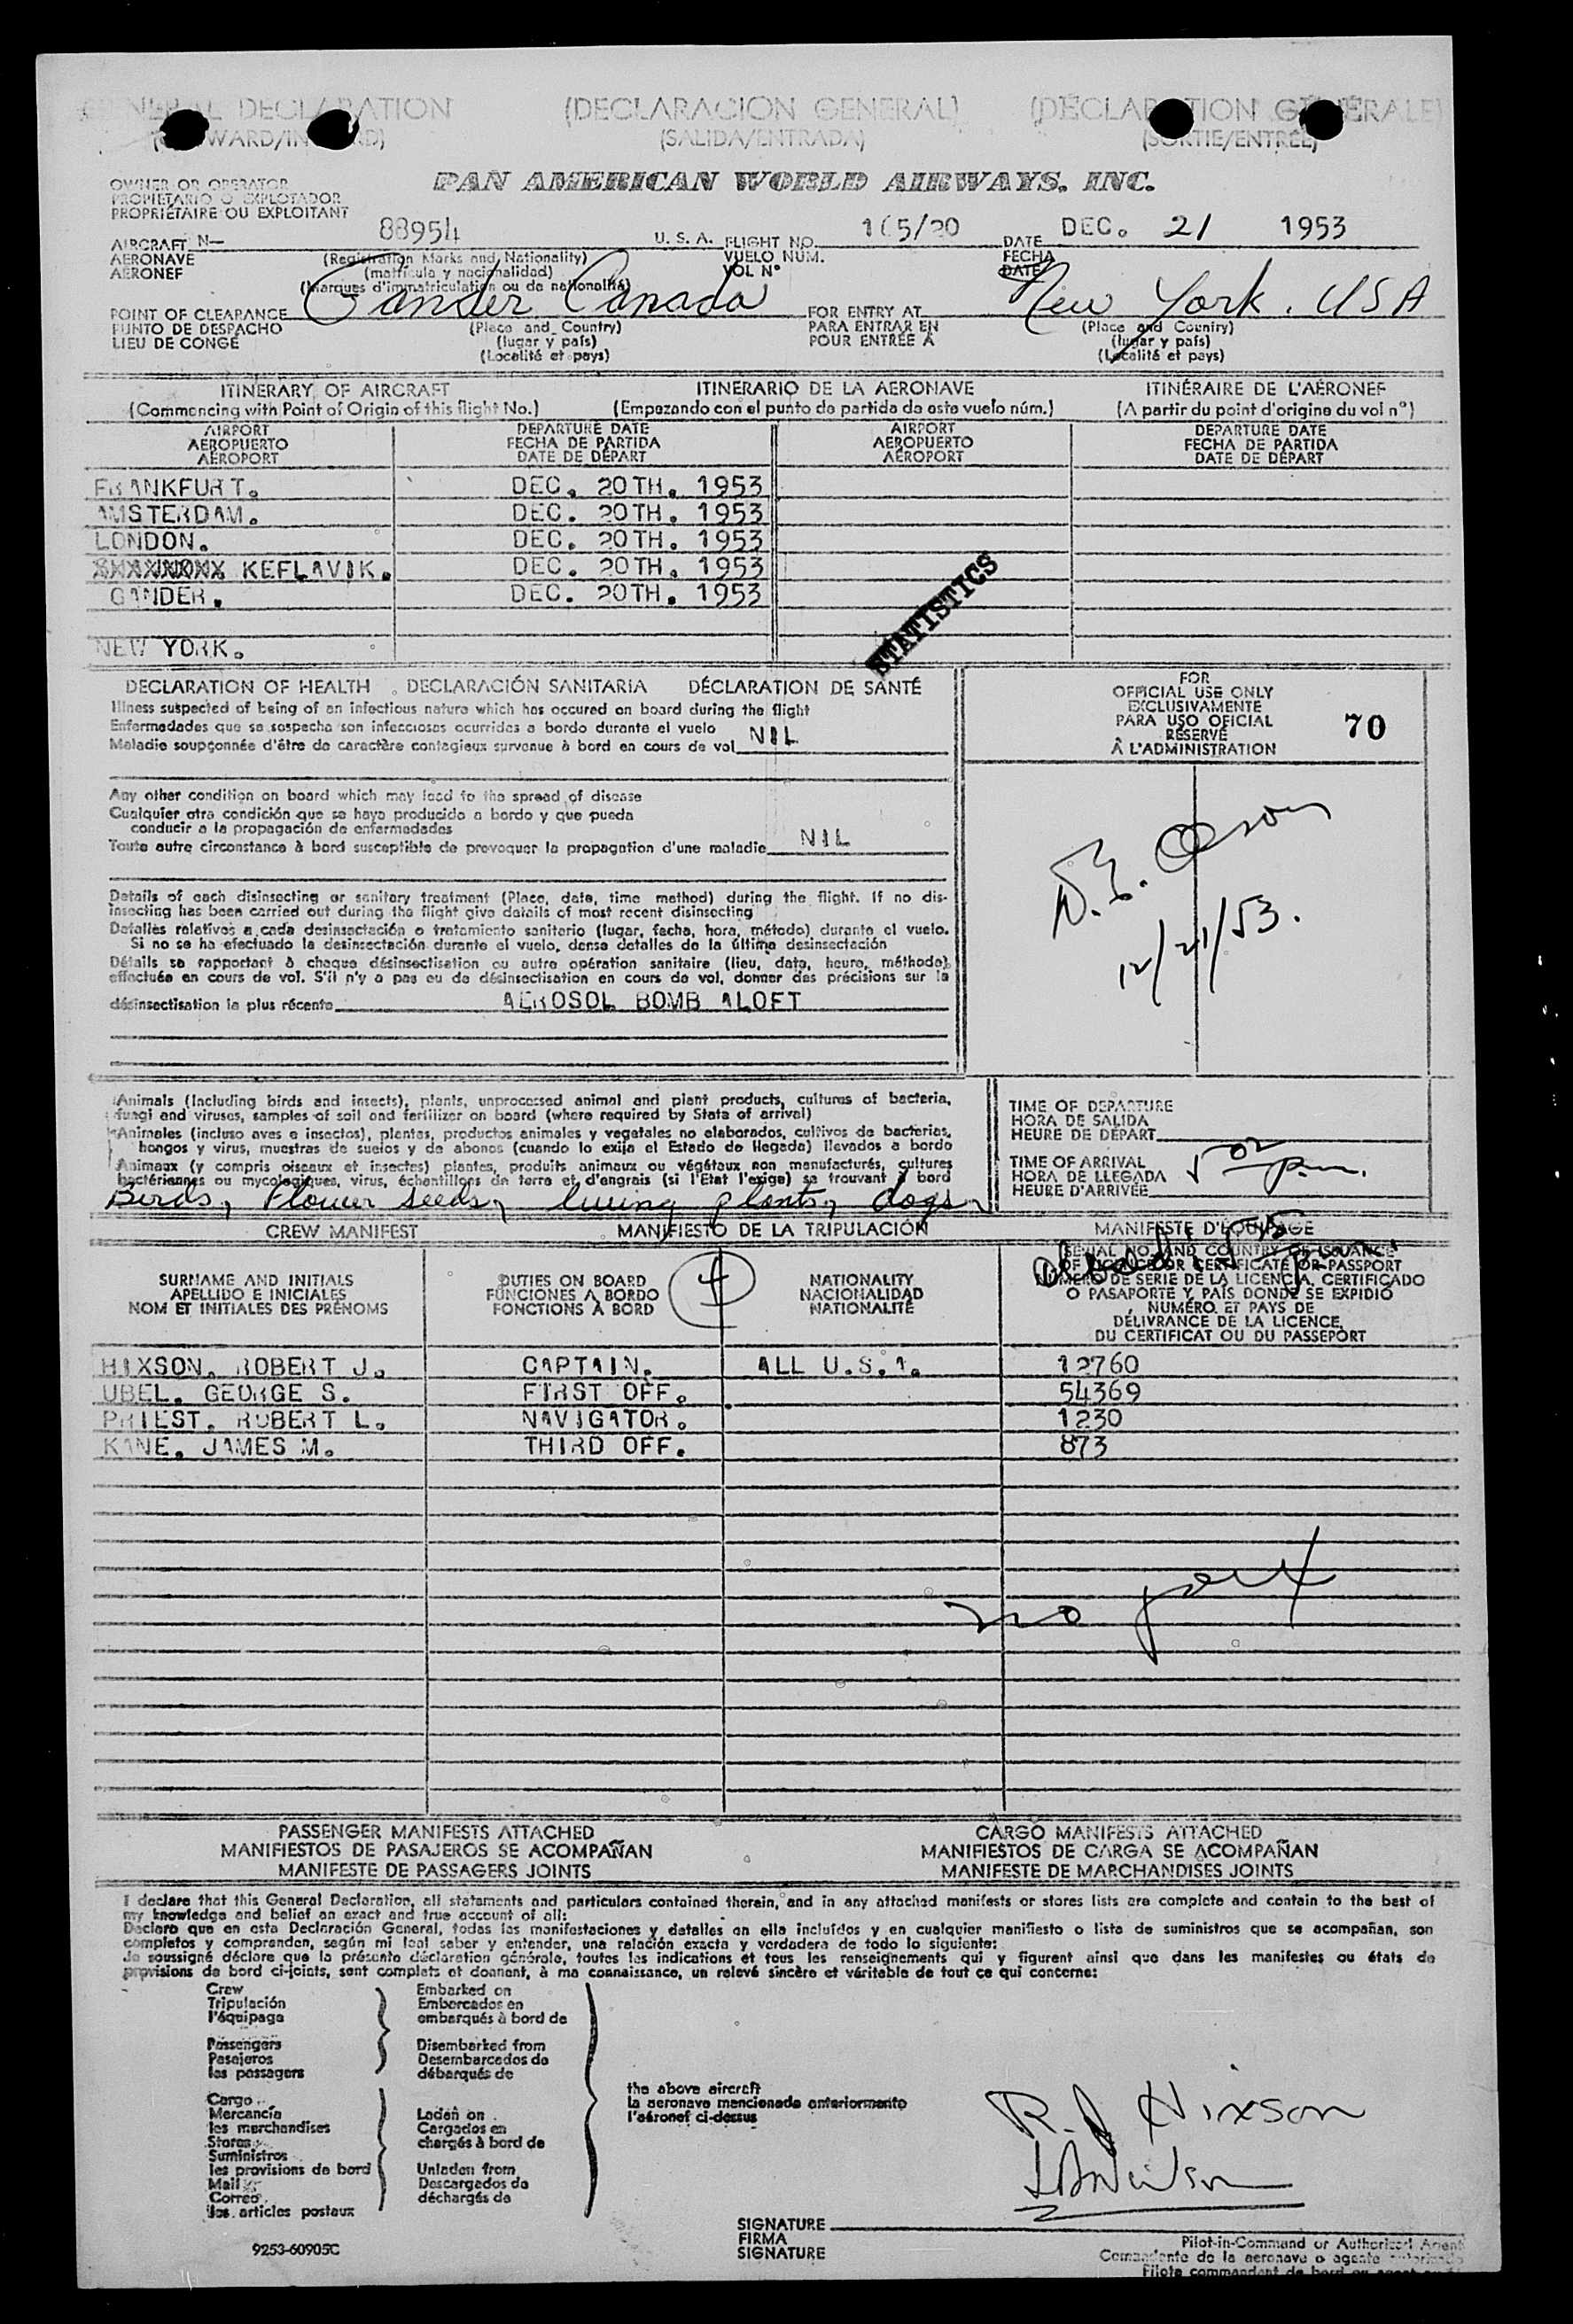 GENERAL DECLARATION (DECLARACION GENERAL) (DÉCLARATION GÉNÉRALE)
(OUTWARD/INWARD) (SALIDA/ENTRADA) (SORTIE/ENTRÉE)
OWNER OR OPERATOR
PROPIETARIO O EXPLOTADOR
PROPRIÉTAIRE OU EXPLOITANT
PAN AMERICAN WORLD AIRWAYS, INC.
AIRCRAFT N- 88954 U. S. A. FLIGHT NO. 165/20 DATE DEC. 21 1953
AERONAVE (Registration Marks and Nationality) VUELO NUM. FECHA
AÉRONEF (matrícula y nacionalidad) VOL N° DATE
(Marques d'immatriculation ou de nationalité)
POINT OF CLEARANCE Gander Canada FOR ENTRY AT New York. USA
PUNTO DE DESPACHO (Place and Country) PARA ENTRAR EN (Place and Country)
LIEU DE CONGÉ (lugar y país) POUR ENTRÉE À (lugar y país)
(Localité et pays) (Localité et pays)
ITINERARY OF AIRCRAFT ITINERARIO DE LA AERONAVE ITINÉRAIRE DE L'AÉRONEF
(Commencing with Point of Origin of this flight No.) (Empezando con el punto de partida de este vuelo núm.) (A partir du point d'origine du vol n°)
AIRPORT DEPARTURE DATE AIRPORT DEPARTURE DATE
AEROPUERTO FECHA DE PARTIDA AEROPUERTO FECHA DE PARTIDA
AÉROPORT DATE DE DÉPART AÉROPORT DATE DE DÉPART
FRANKFURT. DEC. 20TH. 1953
AMSTERDAM. DEC. 20TH. 1953
LONDON. DEC. 20TH. 1953
KEFLAVIK. DEC. 20TH. 1953
GANDER. DEC. 20TH. 1953
NEW YORK.
STATISTICS
DECLARATION OF HEALTH . DECLARACIÓN SANITARIA DÉCLARATION DE SANTÉ
Illness suspected of being of an infectious nature which has occured on board during the flight
Enfermedades que se sospecha son infecciosas ocurridas a bordo durante el vuelo
Maladie soupçonnée d'être de caractère contagieux survenue à bord en cours de vol NIL
Any other condition on board which may lead to the spread of disease
Cualquier otra condición que se haya producido a bordo y que pueda
conducir a la propagación de enfermedades
Toute autre circonstance à bord susceptible de provoquer la propagation d'une maladie NIL
Details of each disinsecting or sanitary treatment (Place, date, time method) during the flight. If no dis-
insecting has been carried out during the flight give details of most recent disinsecting
Detalles relativos a cada desinsectación o tratamiento sanitario (lugar, fecha, hora, método) durante el vuelo.
Si no se ha efectuado la desinsectación durante el vuelo, dense detalles de la última desinsectación
Détails se rapportant à chaque désinsectisation ou autre opération sanitaire (lieu, date, heure, méthode)
effectuée en cours de vol. S'il n'y a pas eu de désinsectisation en cours de vol, donner des précisions sur la
désinsectisation la plus récente AEROSOL BOMB ALOFT
FOR
OFFICIAL USE ONLY
EXCLUSIVAMENTE
PARA USO OFICIAL
RÉSERVÉ
À L'ADMINISTRATION
70
12/21/53.
Animals (Including birds and insects), plants, unprocessed animal and plant products, cultures of bacteria,
fungi and viruses, samples of soil and fertilizer on board (where required by State of arrival)
Animales (incluso aves e insectos), plantas, productos animales y vegetales no elaborados, cultivos de bacterias,
hongos y virus, muestras de suelos y de abonos (cuando lo exija el Estado de llegada) llevados a bordo
Animaux (y compris oiseaux et insectes) plantes, produits animaux ou végétaux non manufacturés, cultures
bactériennes ou mycologiques, virus, échantillons de terre et d'engrais (si l'Etat l'exige) se trouvant à bord
Birds, Flower seeds, living plants, dogs
TIME OF DEPARTURE
HORA DE SALIDA
HEURE DE DÉPART
TIME OF ARRIVAL
HORA DE LLEGADA 5 02 p.m.
HEURE D'ARRIVÉE
CREW MANIFEST MANIFIESTO DE LA TRIPULACIÓN MANIFESTE D'EQUIPAGE
SURNAME AND INITIALS
APELLIDO E INICIALES
NOM ET INITIALES DES PRÉNOMS
DUTIES ON BOARD
FUNCIONES A BORDO
FONCTIONS À BORD
4
NATIONALITY
NACIONALIDAD
NATIONALITÉ
SERIAL NO. AND COUNTRY OF ISSUANCE
OF LICENCE OR CERTIFICATE OR PASSPORT
NUMERO DE SERIE DE LA LICENCIA, CERTIFICADO
O PASAPORTE Y PAÍS DONDE SE EXPIDIÓ
NUMÉRO ET PAYS DE
DÉLIVRANCE DE LA LICENCE,
DU CERTIFICAT OU DU PASSEPORT
HIXSON. ROBERT J. CAPTAIN. ALL U.S.A. 12760
UBEL. GEORGE S. FIRST OFF. 54369
PRIEST. ROBERT L. NAVIGATOR. 1230
KANE. JAMES M. THIRD OFF. 873
no
PASSENGER MANIFESTS ATTACHED CARGO MANIFESTS ATTACHED
MANIFIESTOS DE PASAJEROS SE ACOMPAÑAN MANIFIESTOS DE CARGA SE ACOMPAÑAN
MANIFESTE DE PASSAGERS JOINTS MANIFESTE DE MARCHANDISES JOINTS
I declare that this General Declaration, all statements and particulars contained therein, and in any attached manifests or stores lists are complete and contain to the best of
my knowledge and belief an exact and true account of all:
Declaro que en esta Declaración General, todas las manifestaciones y detalles en ella incluídos y en cualquier manifiesto o lista de suministros que se acompañan, son
completos y comprenden, según mi leal saber y entender, una relación exacta y verdadera de todo lo siguiente:
Je soussigné déclare que la présente déclaration générale, toutes les indications et tous les renseignements qui y figurent ainsi que dans les manifestes ou états de
provisions de bord ci-joints, sont complets et donnent, à ma connaissance, un relevé sincère et véritable de tout ce qui concerne:
Crew Embarked on
Tripulación Embarcados en
l'équipage embarqués à bord de
Passengers Disembarked from
Pasajeros Desembarcados de
les passagers débarqués de
the above aircraft
la aeronave mencionada anteriormente
l'aéronef ci-dessus
Cargo
Mercancía Laden on
les marchandises Cargados en
Stores chargés à bord de
Suministros
les provisions de bord Unladen from
Mail Descargados de
Correo déchargés de
les articles postaux
R. J Hixson
SIGNATURE
FIRMA
SIGNATURE
Pilot-in-Command or Authorized Agent
Comandante de la aeronave o agente autorizado
Pilote commandant de bord ou agent
9253-60905C